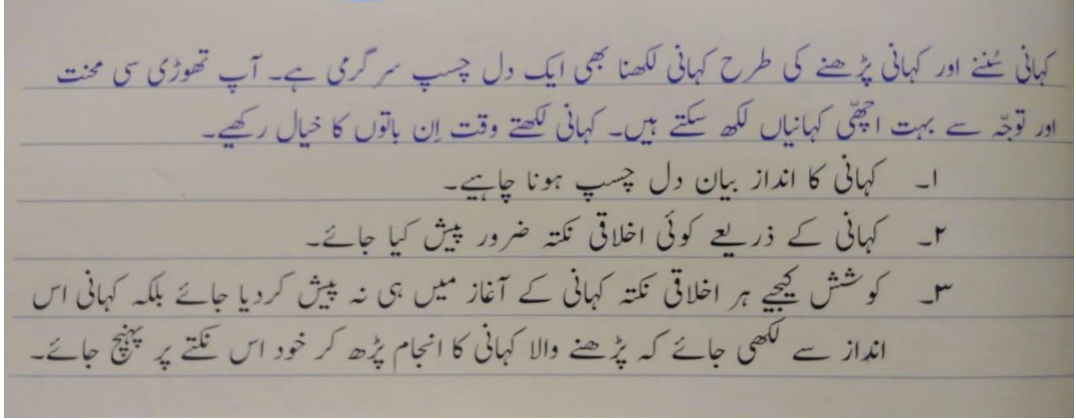 کہانی سُننے اور کہانی پڑھنے کی طرح کہانی لکھنا بھی ایک دل چسپ سرگرمی ہے۔ آپ تھوڑی سی محنت
اور توجّہ سے بہت اچھّی کہانیاں لکھ سکتے ہیں۔ کہانی لکھتے وقت اِن باتوں کا خیال رکھیے۔
۱۔ کہانی کا انداز بیان دل چسپ ہونا چاہیے۔
۲۔ کہانی کے ذریعے کوئی اخلاقی نکتہ ضرور پیش کیا جائے۔
۳۔ کوشش کیجیے ہر اخلاقی نکتہ کہانی کے آغاز میں ہی نہ پیش کردیا جائے بلکہ کہانی اس
انداز سے لکھی جائے کہ پڑھنے والا کہانی کا انجام پڑھ کر خود اس نکتے پر پہنچ جائے۔